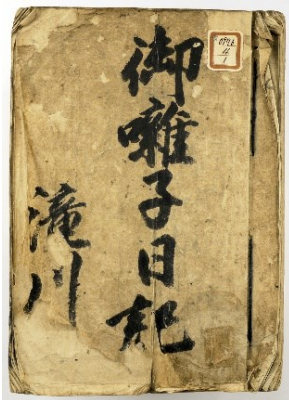 御囃子日記
滝川